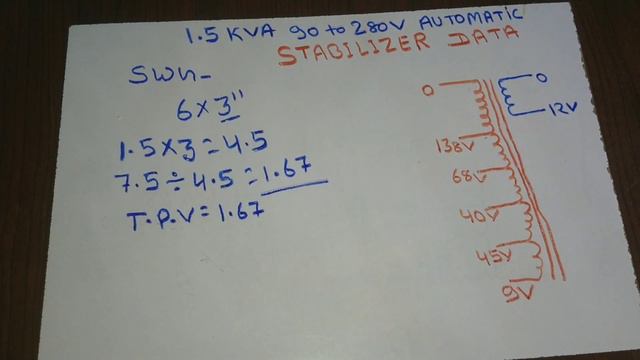 1.5 KVA 90 to 280V AUTOMATIC
STABILIZER DATA
6 x 3"
1.5 x 3 = 4.5
7.5 ÷ 4.5 = 1.67
T.P.V = 1.67
0
138V
68V
40V
45V
9V
0
12V